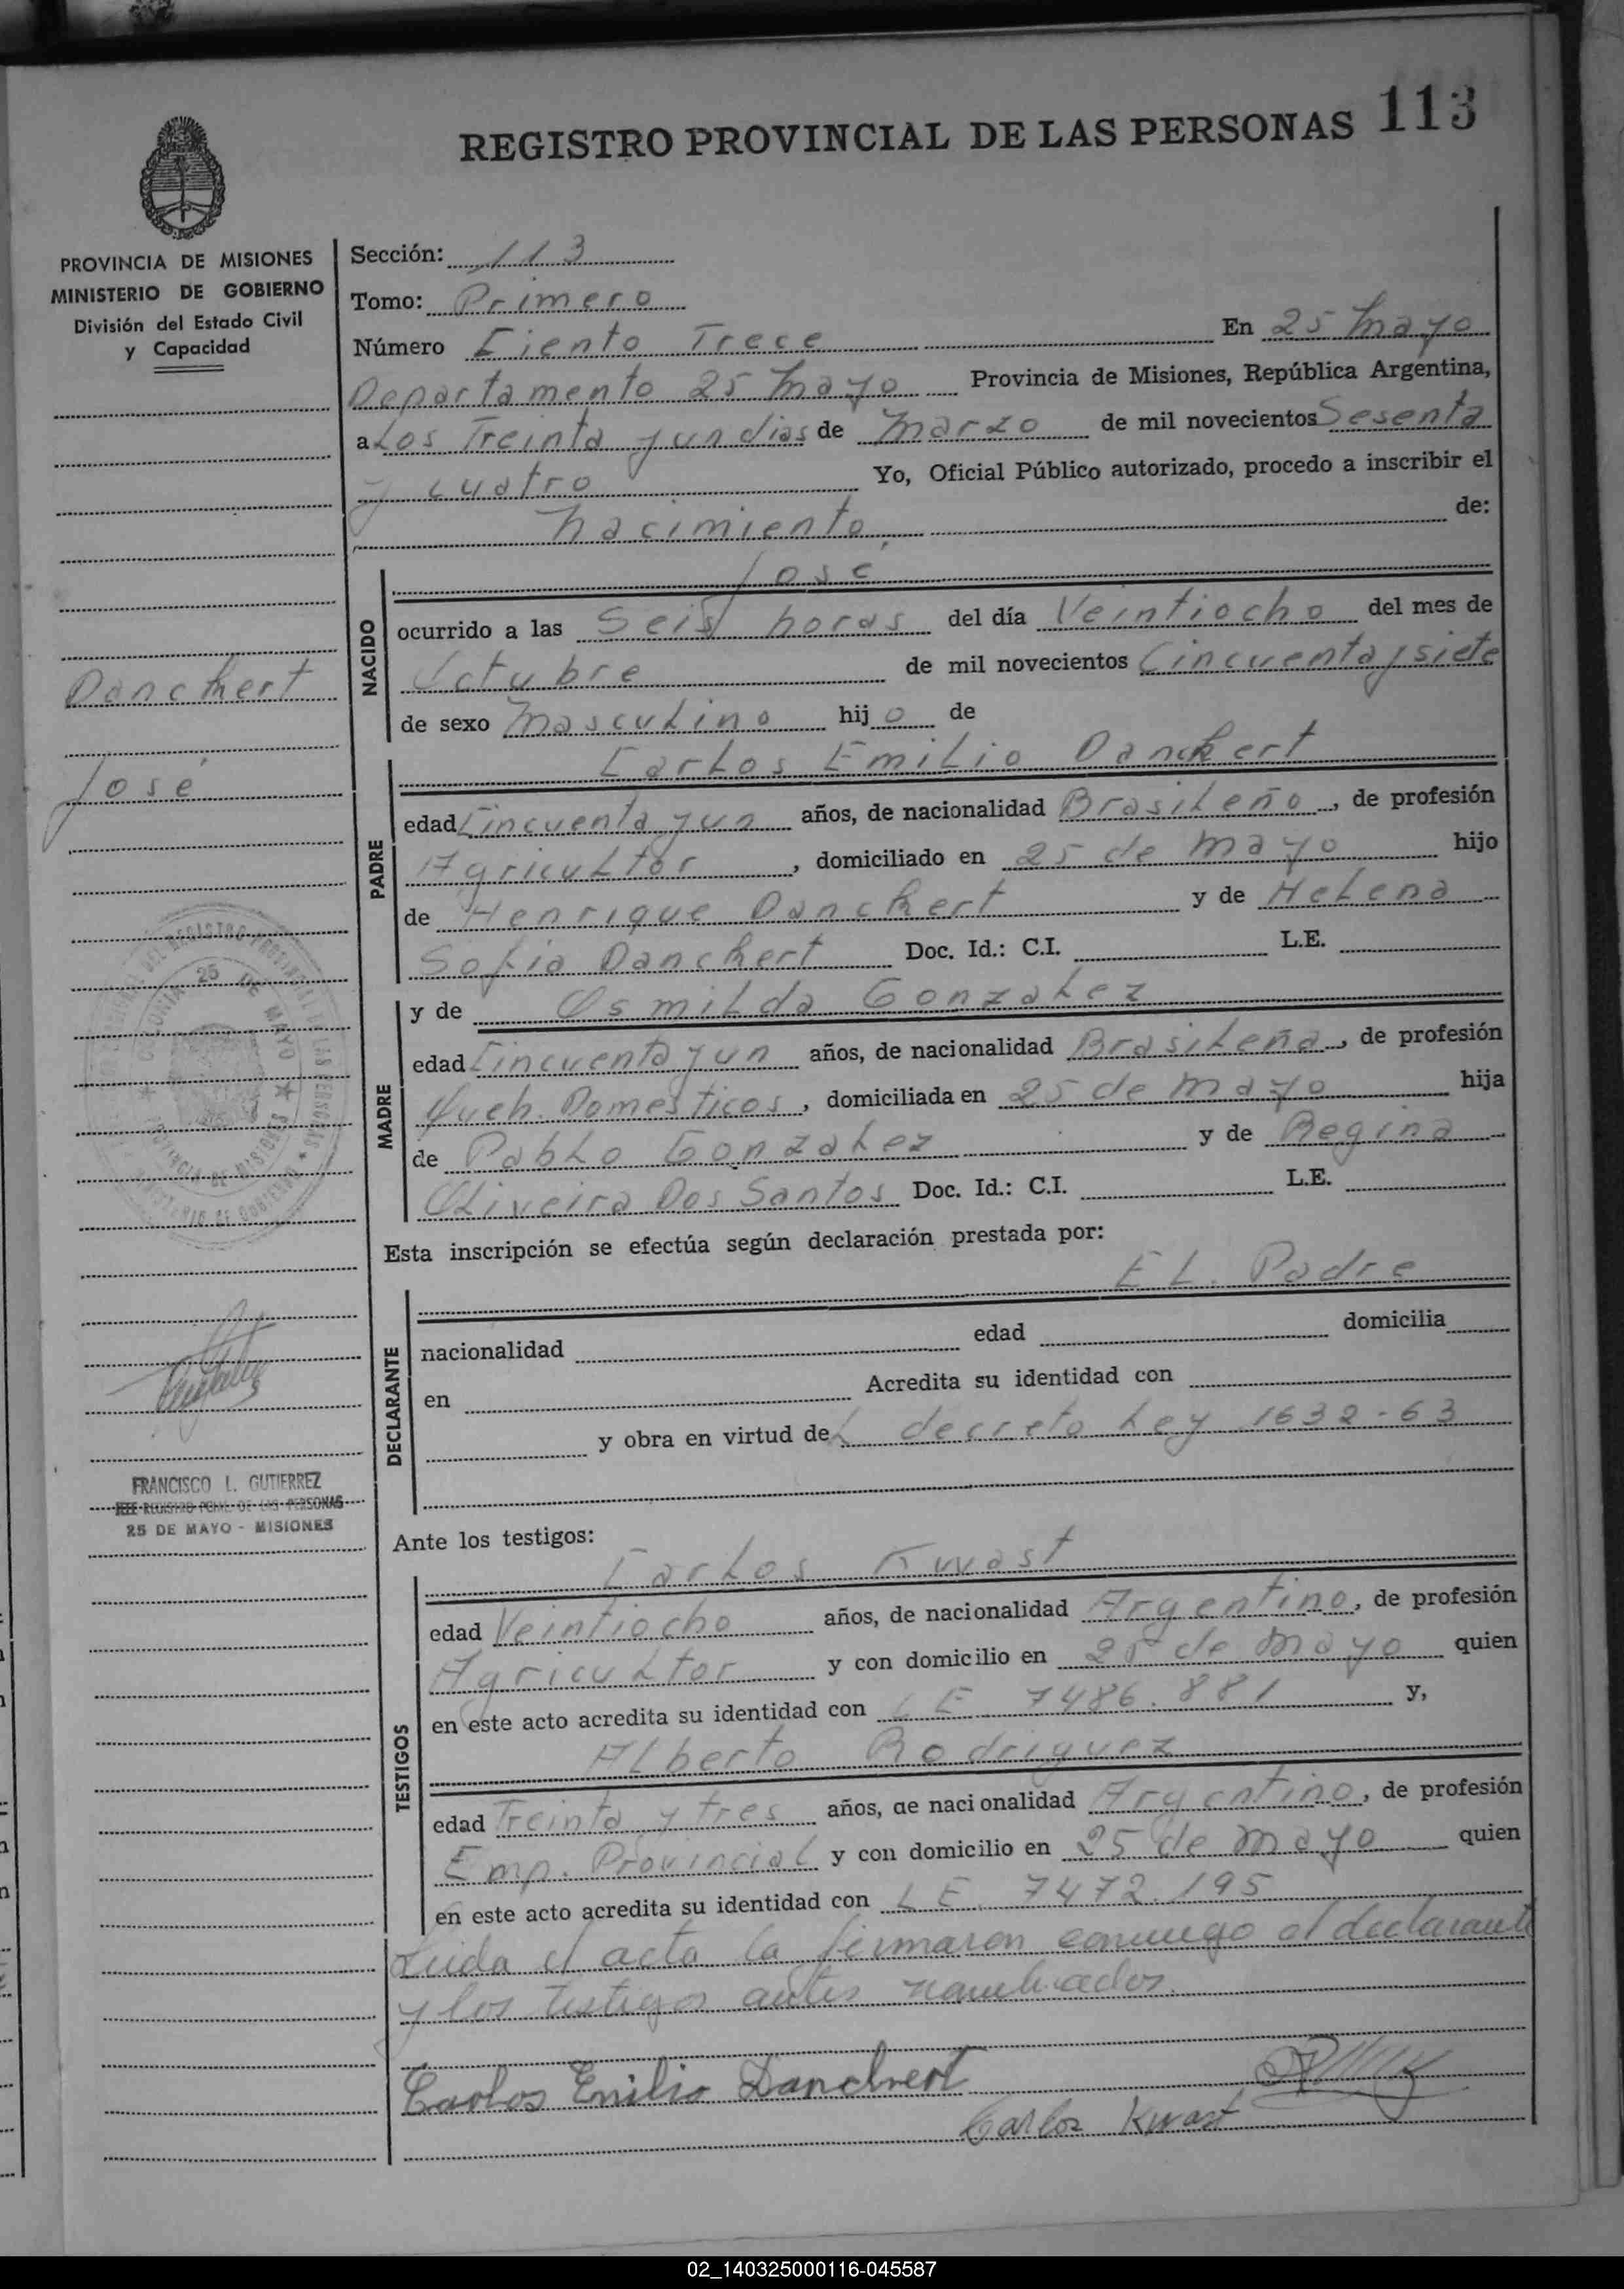 REGISTRO PROVINCIAL DE LAS PERSONAS 113
PROVINCIA DE MISIONES
MINISTERIO DE GOBIERNO
División del Estado Civil
y Capacidad
Danckert
José
COLONIA 25 DE MAYO
PROVINCIA DE MISIONES
FRANCISCO L. GUTIERREZ
JEFE REGISTRO PCIAL. DE LAS PERSONAS
25 DE MAYO - MISIONES
Sección: 113
Tomo: Primero
Número Ciento Trece En 25 Mayo
Departamento 25 Mayo Provincia de Misiones, República Argentina,
a Los Treinta y un dias de Marzo de mil novecientos Sesenta
y cuatro Yo, Oficial Público autorizado, procedo a inscribir el
nacimiento de:
NACIDO
José
ocurrido a las Seis horas del día Veintiocho del mes de
Octubre de mil novecientos Cincuenta y siete
de sexo Masculino hijo de
PADRE
Carlos Emilio Danckert
edad Cincuenta y un años, de nacionalidad Brasileño, de profesión
Agricultor, domiciliado en 25 de Mayo hijo
de Henrique Danckert y de Helena
Sofia Danckert Doc. Id.: C.I. L.E.
MADRE
y de Osmilda Gonzalez
edad Cincuenta y un años, de nacionalidad Brasileña, de profesión
Queh. Domesticos, domiciliada en 25 de Mayo hija
de Pablo Gonzalez y de Regina
Oliveira Dos Santos Doc. Id.: C.I. L.E.
Esta inscripción se efectúa según declaración prestada por:
DECLARANTE
EL Padre
nacionalidad edad domicilia
en Acredita su identidad con
y obra en virtud del decreto Ley 1632-63
Ante los testigos:
TESTIGOS
Carlos Kwast
edad Veintiocho años, de nacionalidad Argentino, de profesión
Agricultor y con domicilio en 25 de Mayo quien
en este acto acredita su identidad con LE 7486.881 y,
Alberto Rodriguez
edad Treinta y tres años, de nacionalidad Argentino, de profesión
Emp. Provincial y con domicilio en 25 de Mayo quien
en este acto acredita su identidad con LE. 7472.195
Leida el acta la firmaron conmigo el declarante
y los testigos antes nombrados.
Carlos Emilio Danckert
Carlos Kwast
02_140325000116-045587